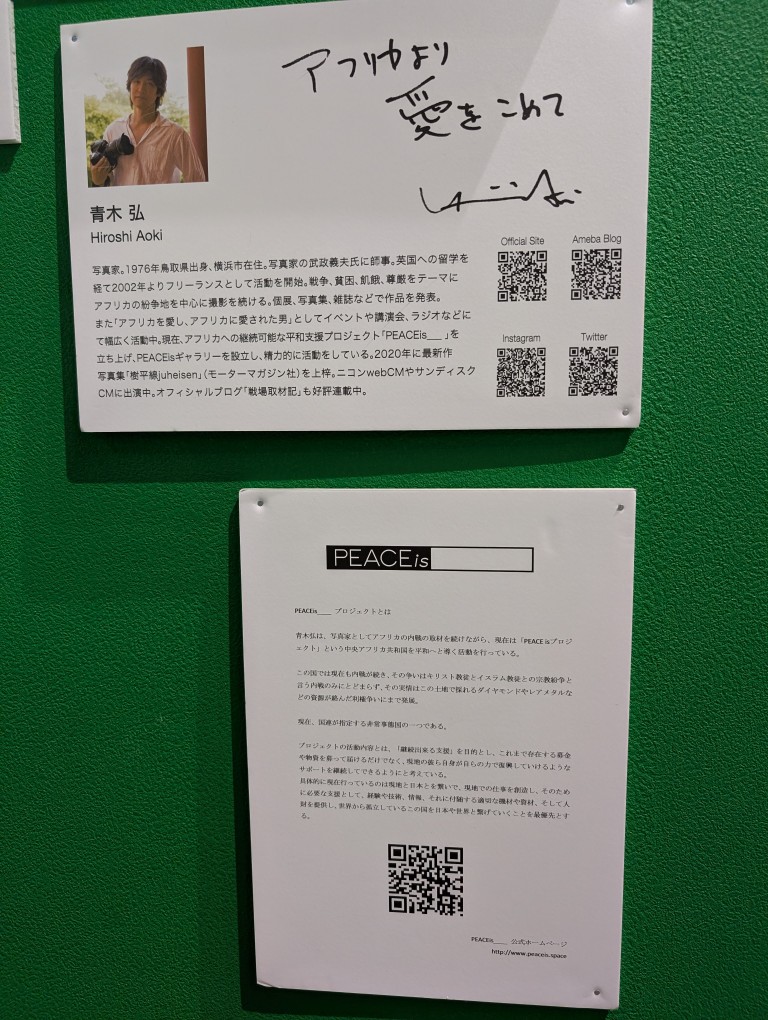 アフリカより
愛をこめて
青木 弘
Hiroshi Aoki
写真家。1976年鳥取県出身、横浜市在住。写真家の武政義夫氏に師事。英国への留学を
経て2002年よりフリーランスとして活動を開始。戦争、貧困、飢餓、尊厳をテーマに
アフリカの紛争地を中心に撮影を続ける。個展、写真集、雑誌などで作品を発表。
また「アフリカを愛し、アフリカに愛された男」としてイベントや講演会、ラジオなどに
て幅広く活動中。現在、アフリカへの継続可能な平和支援プロジェクト「PEACEis__ 」を
立ち上げ、PEACEisギャラリーを設立し、精力的に活動をしている。2020年に最新作
写真集「樹平線juheisen」(モーターマガジン社)を上梓。ニコンwebCMやサンディスク
CMに出演中。オフィシャルブログ「戦場取材記」も好評連載中。
Official Site
Ameba Blog
Instagram
Twitter
PEACEis
PEACEis____ プロジェクトとは
青木弘は、写真家としてアフリカの内戦の取材を続けながら、現在は「PEACE isプロジ
ェクト」という中央アフリカ共和国を平和へと導く活動を行っている。
この国では現在も内戦が続き、その争いはキリスト教徒とイスラム教徒との宗教紛争と
言う内戦のみにとどまらず、その実情はこの土地で採れるダイヤモンドやレアメタルな
どの資源が絡んだ利権争いにまで発展。
現在、国連が指定する非常事態国の一つである。
プロジェクトの活動内容とは、「継続出来る支援」を目的とし、これまで存在する募金
や物資を募って届けるだけでなく、現地の彼ら自身が自らの力で復興していけるような
サポートを継続してできるようにと考えている。
具体的に現在行っているのは現地と日本とを繋いで、現地での仕事を創造し、そのため
に必要な支援として、経験や技術、情報、それに付随する適切な機材や資材、そして人
財を提供し、世界から孤立しているこの国を日本や世界と繋げていくことを最優先とす
る。
PEACEis____ 公式ホームページ
http://www.peaceis.space